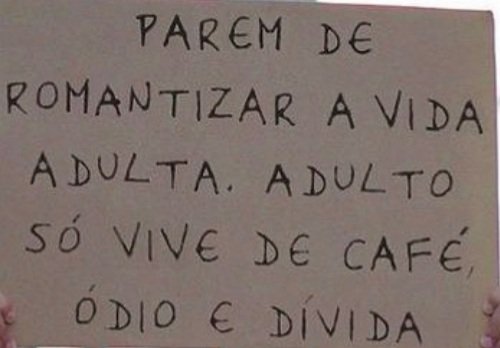 PAREM DE
ROMANTIZAR A VIDA
ADULTA. ADULTO
SÓ VIVE DE CAFÉ,
ÓDIO E DÍVIDA